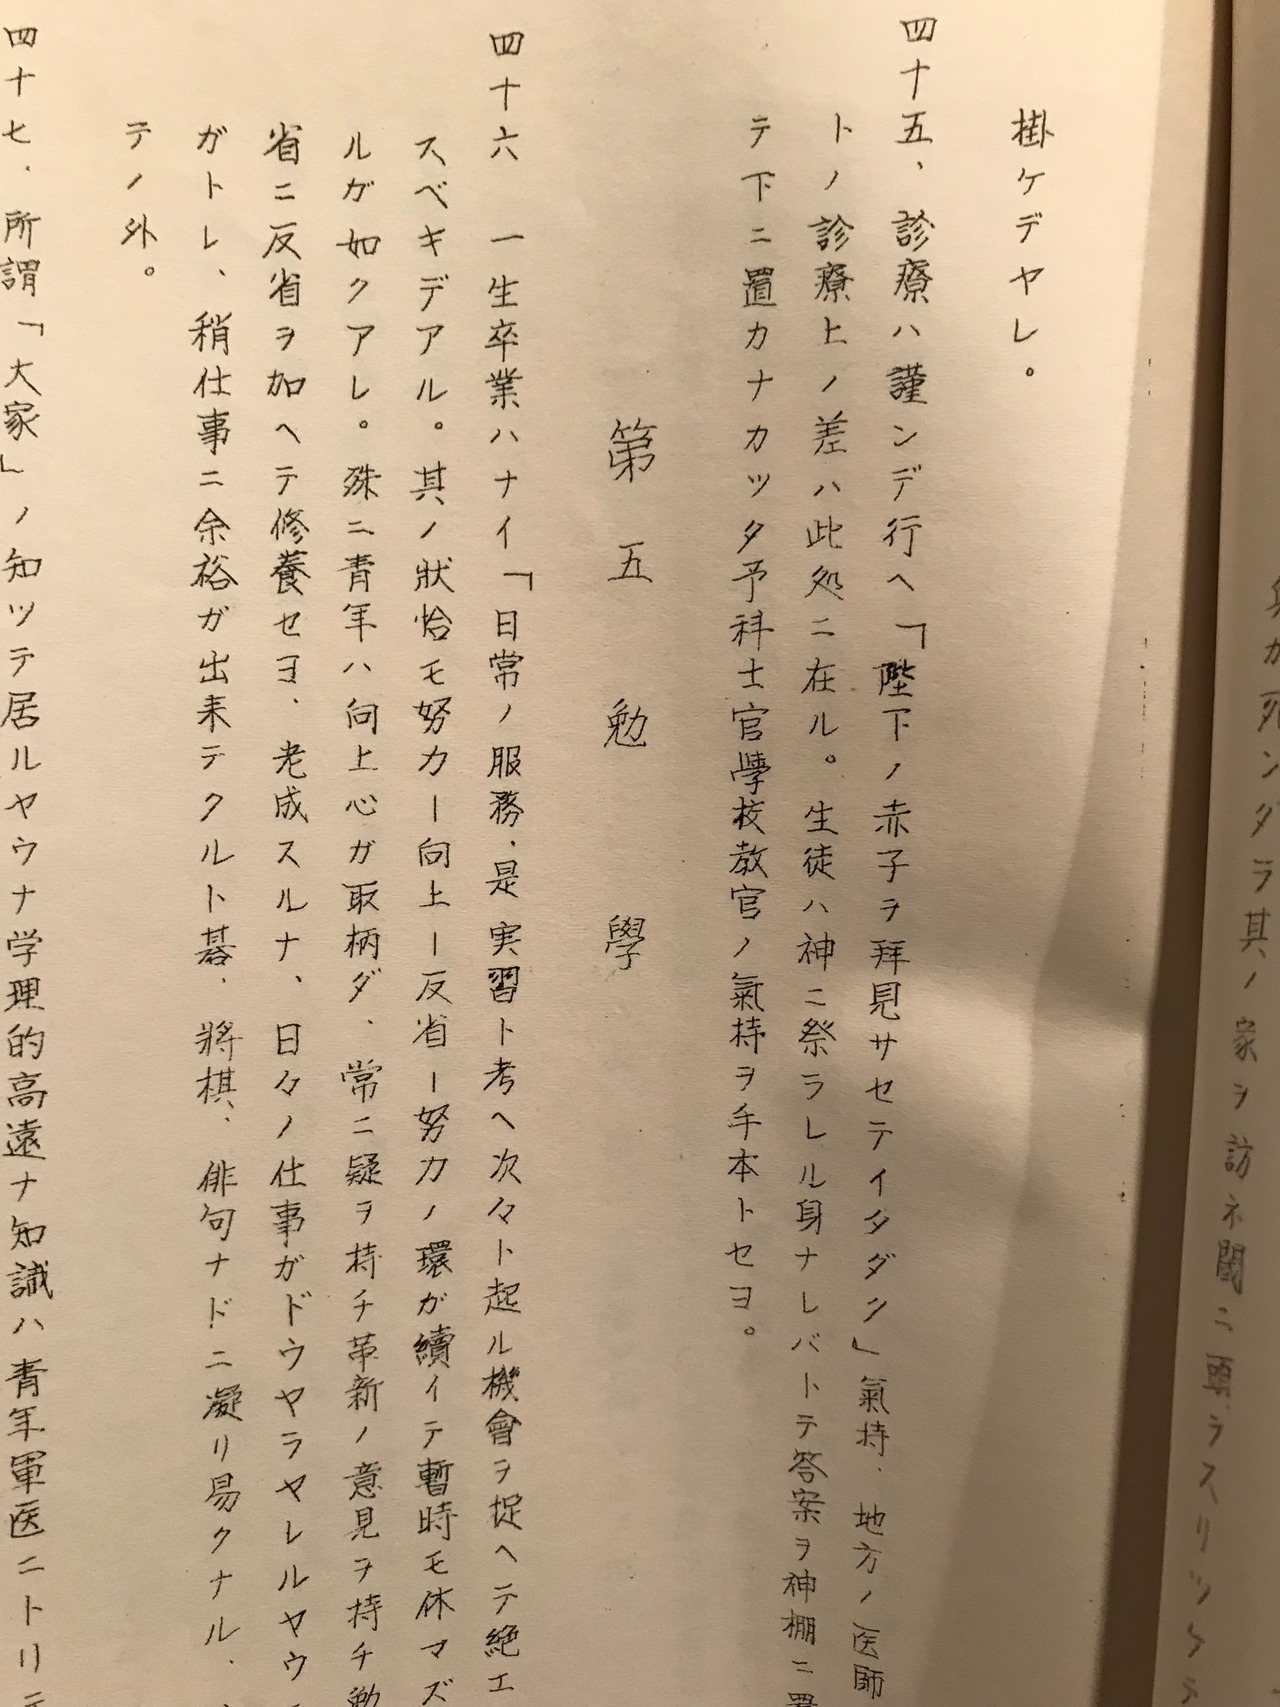 ガ死ンダラ其ノ家ヲ訪ネ閾ニ頭ヲスリツケテ
掛ケデヤレ。
四十五、診療ハ謹ンデ行ヘ「陛下ノ赤子ヲ拜見サセテイタダク」氣持、地方ノ医師
トノ診療上ノ差ハ此処ニ在ル。生徒ハ神ニ祭ラレル身ナレバトテ答案ヲ神棚ニ置
テ下ニ置カナカツタ予科士官學校教官ノ氣持ヲ手本トセヨ。
第五 勉學
四十六 一生卒業ハナイ「日常ノ服務、是実習ト考ヘ次々ト起ル機會ヲ捉ヘテ絶エ
スベキデアル。其ノ狀恰モ努力ー向上ー反省ー努力ノ環ガ續イテ暫時モ休マズ
ルガ如クアレ。殊ニ青年ハ向上心ガ取柄ダ、常ニ疑ヲ持チ革新ノ意見ヲ持チ勉
省ニ反省ヲ加ヘテ修養セヨ、老成スルナ、日々ノ仕事ガドウヤラヤレルヤウ
ガトレ、稍仕事ニ余裕ガ出来テクルト碁、將棋、俳句ナドニ凝リ易クナル、
テノ外。
四十七、所謂「大家」ノ知ツテ居ルヤウナ学理的高遠ナ知識ハ青年軍医ニトリテ